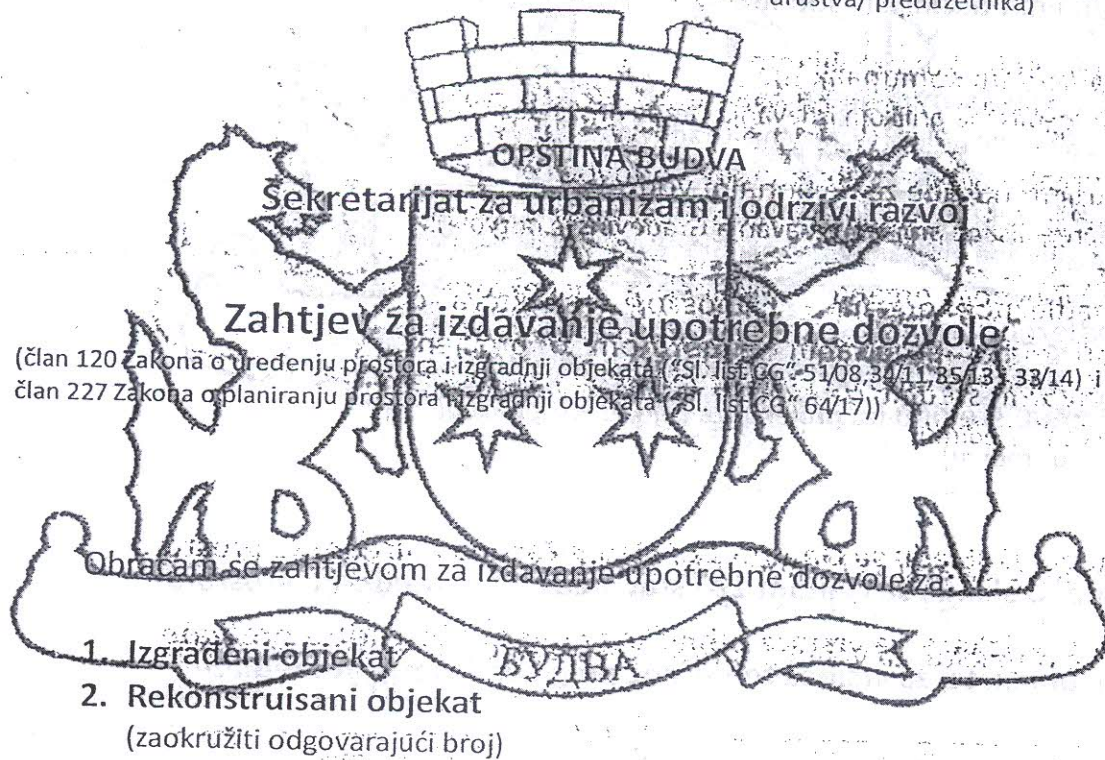 društva/ preduzetnika)
OPŠTINA BUDVA
Sekretarijat za urbanizam i održivi razvoj
Zahtjev za izdavanje upotrebne dozvole
(član 120 Zakona o uređenju prostora i izgradnji objekata ("Sl. list CG" 51/08,34/11,35/13,33/14) i
član 227 Zakona o planiranju prostora i izgradnji objekata ("Sl. list CG" 64/17))
Obraćam se zahtjevom za izdavanje upotrebne dozvole za:
1. Izgrađeni objekat
БУДВА
2. Rekonstruisani objekat
(zaokružiti odgovarajući broj)